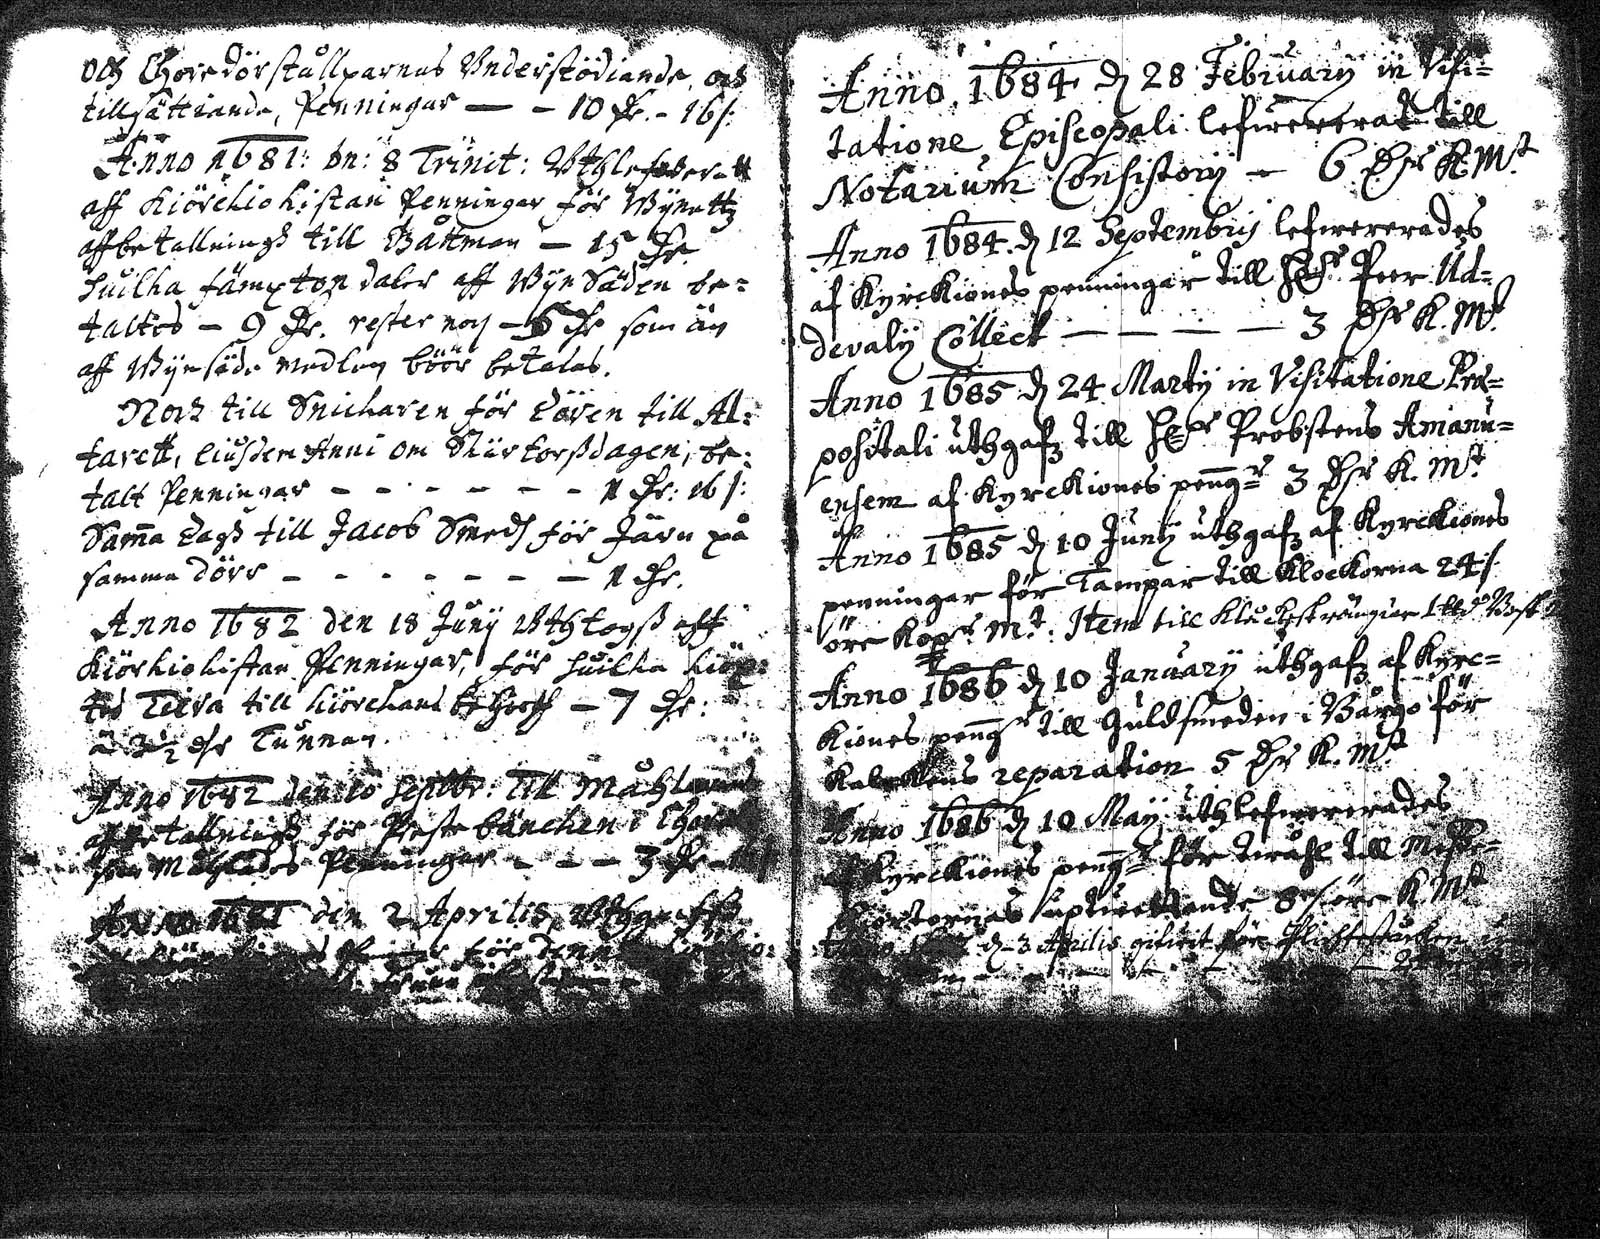 och Choredörstållparnas Vnderstödiande, och
tillsättiande, Penningar — – 10 dr. – 16 s:
Anno 1681: Dn: 8 Trinit: Vthlefverett
aff Kiörckiokistan Penningar för Wynetz
affbetallningh till Båtman — 15 dr
huilka fämpton daler aff Wyn Säden be=
taltes – 9 dr. rester noch – 6 dr som än
aff Wynsäds medlen böör betalas.
Noch till Snicharen för Dören till Al=
tarett, eiusdem Anni om Skärtorssdagen, be=
talt Penningar – – – – – – 1 dr: 16 s:
Samma Dagh till Jacob Smedh för Järn på
samma dörr – – – – – – – 1 dr.
Anno 1682 den 18 Juny Vthtogss aff
Kiörkiokistan Penningar, för huilka kiöp=
tes Tiära till kiörchans behooff – 7 dr:
a 3½ dr Tunnan.
Anno 1682 den 10 Septbr: till Måhlarens
affbetallningh för Preste bänchen i Choret
som Måhlades Penningar – – – 3 dr
Anno 1681 den 2 Aprilis, Vthgaffss
för denn
Anno 1684 d 28 February in Visi=
tatione Episcopali lefwererat till
Notarium Consistory – 6 Dr K. Mt
Anno 1684 d 12 Septembris lefwererades
af Kyrckiones penningar till H:r Peer Ud=
devaly Collect — — — — 3 Dr K. Mt
Anno 1685 d 24 Marty in Visitatione Præ=
positali uthgafz till H:r Probstens Amanu=
ensem af Kyrckiones peng:r 3 Dr K. Mt
Anno 1685 d 10 Juny uthgafz af Kyrckiones
penningar för Tampar till Klockorna 24 s:
öre Kop:r Mt. Item till Klåckesträngiar 1
Anno 1686 d 10 January uthgafz af Kyrc=
kiones peng:r till Guldsmeden i Bårgo för
Kalckens reparation 5 Dr K. Mt
Anno 1686 d 10 May uthlefwererades
af Kyrckiones peng:r för twåhl till Messe=
skiortornas uptwettande 8 s: öre K. Mt
d 3 Aprilis gifwit för